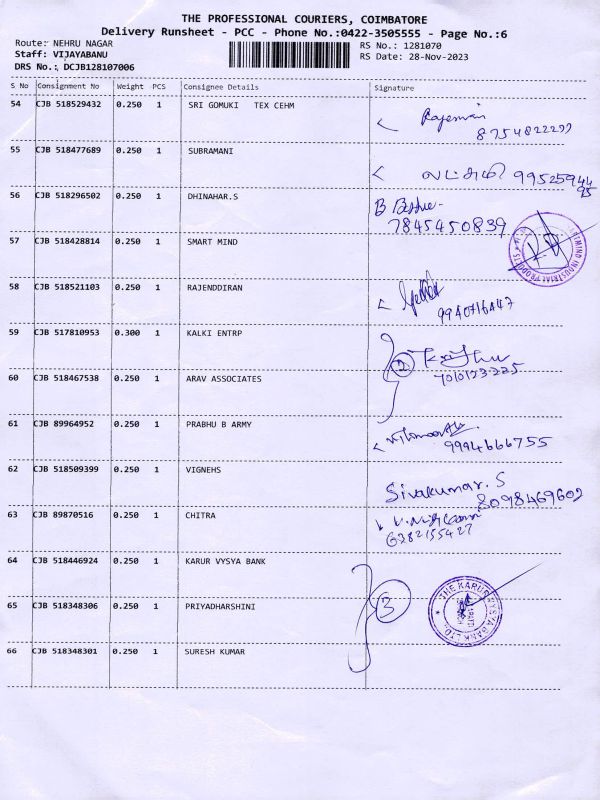 THE PROFESSIONAL COURIERS, COIMBATORE
Delivery Runsheet - PCC - Phone No.:0422-3505555 - Page No.:6
Route: NEHRU NAGAR RS No.: 1281070
Staff: VIJAYABANU RS Date: 28-Nov-2023
DRS No.: DCJB128107006
S No Consignment No Weight PCS Consignee Details Signature
54 CJB 518529432 0.250 1 SRI GOMUKI TEX CEHM
8754822299
55 CJB 518477689 0.250 1 SUBRAMANI
லட்சுமி 9952594495
56 CJB 518296502 0.250 1 DHINAHAR.S
7845450839
57 CJB 518428814 0.250 1 SMART MIND
58 CJB 518521103 0.250 1 RAJENDDIRAN
9940716447
59 CJB 517810953 0.300 1 KALKI ENTRP
2
7010123225
60 CJB 518467538 0.250 1 ARAV ASSOCIATES
61 CJB 89964952 0.250 1 PRABHU B ARMY
9994666755
62 CJB 518509399 0.250 1 VIGNEHS
Sivakumar. S
8098469602
63 CJB 89870516 0.250 1 CHITRA
6382155427
64 CJB 518446924 0.250 1 KARUR VYSYA BANK
THE KARUR VYSYA BANK LTD.
65 CJB 518348306 0.250 1 PRIYADHARSHINI
3
66 CJB 518348301 0.250 1 SURESH KUMAR